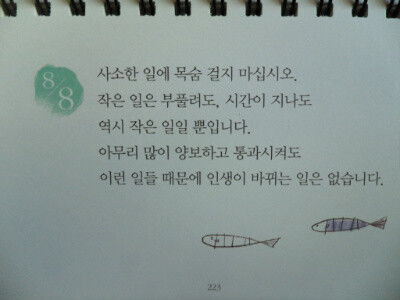 8/8
사소한 일에 목숨 걸지 마십시오.
작은 일은 부풀려도, 시간이 지나도
역시 작은 일일 뿐입니다.
아무리 많이 양보하고 통과시켜도
이런 일들 때문에 인생이 바뀌는 일은 없습니다.
223